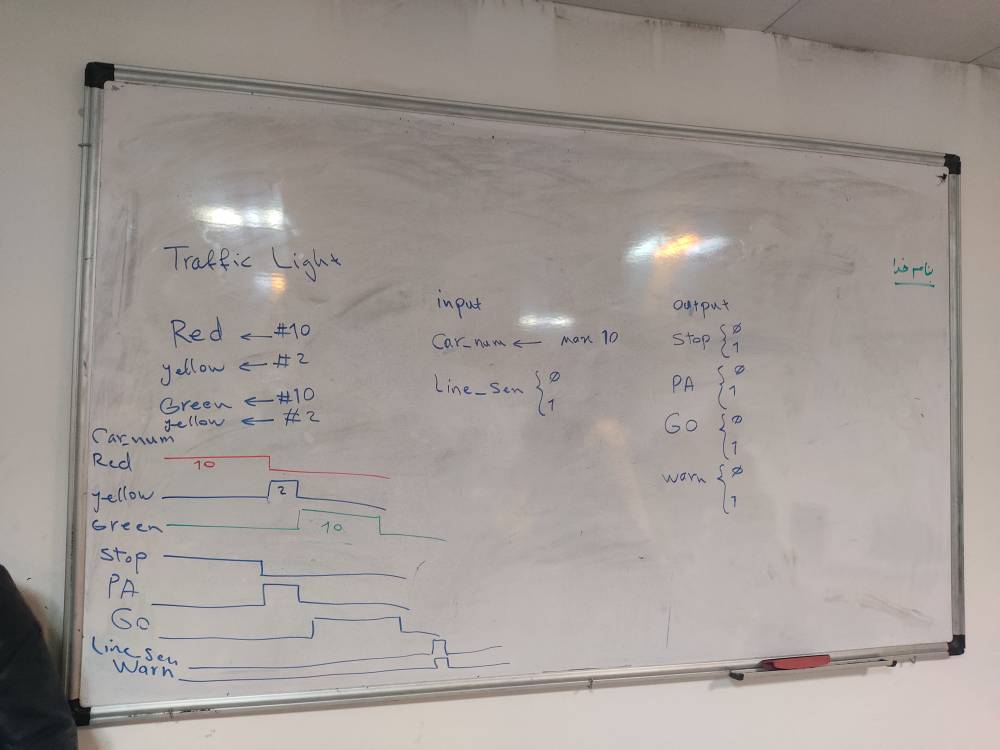 بنام خدا
Traffic Light
Red ← #10
yellow ← #2
Green ← #10
yellow ← #2
input
Car_num ← max 10
Line_Sen { 0 1
output
Stop { 0 1
PA { 0 1
Go { 0 1
Warn { 0 1
Car_num
Red 10
yellow 2
Green 10
Stop
PA
Go
Line_Sen
Warn